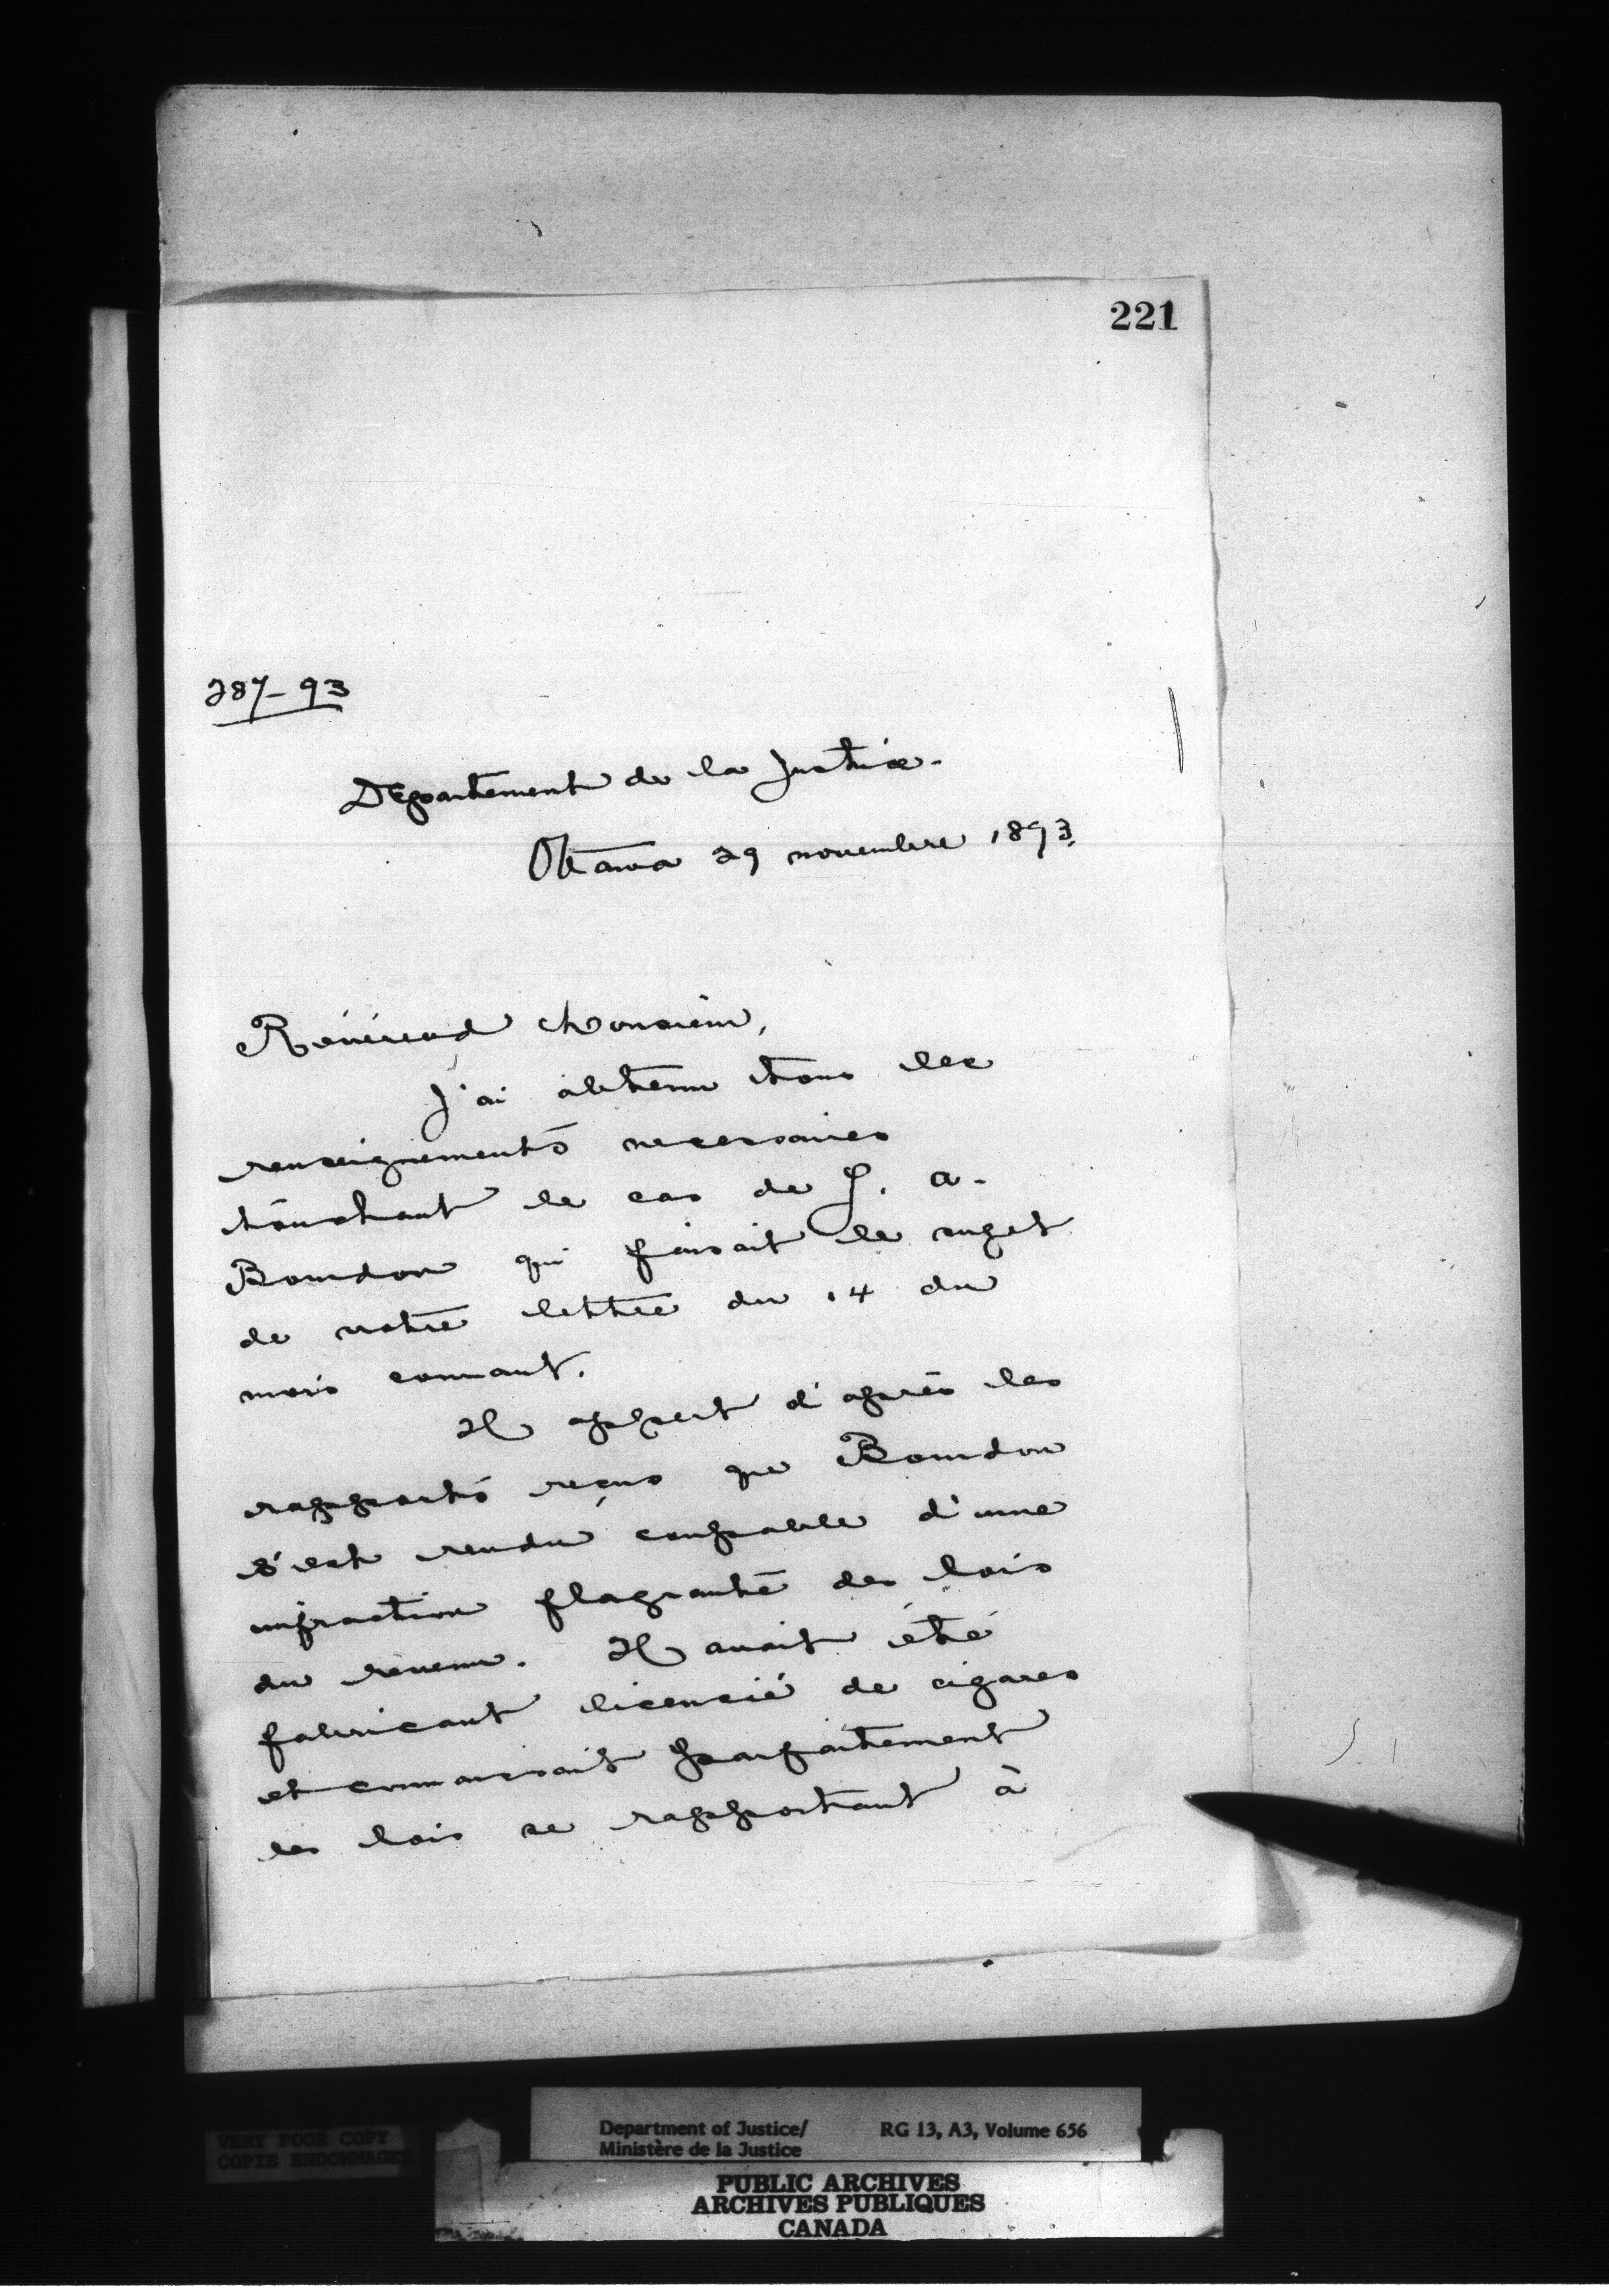 221
287-93
Département de la Justice.
Ottawa 29 novembre 1893.
Révérend Monsieur,
J'ai obtenu tous les
renseignements necessaires
touchant le cas de J. A.
Bourdon qui faisait le sujet
de votre lettre du 14 du
mois courant.
Il appert d'après les
rapports reçus que Bourdon
s'est rendu coupable d'une
infraction flagrante des lois
du revenu. Il avait été
fabricant licencié de cigares
et connaissait parfaitement
les lois se rapportant à
VERY POOR COPY
COPIE ENDOMMAGEE
Department of Justice/ RG 13, A3, Volume 656
Ministère de la Justice
PUBLIC ARCHIVES
ARCHIVES PUBLIQUES
CANADA